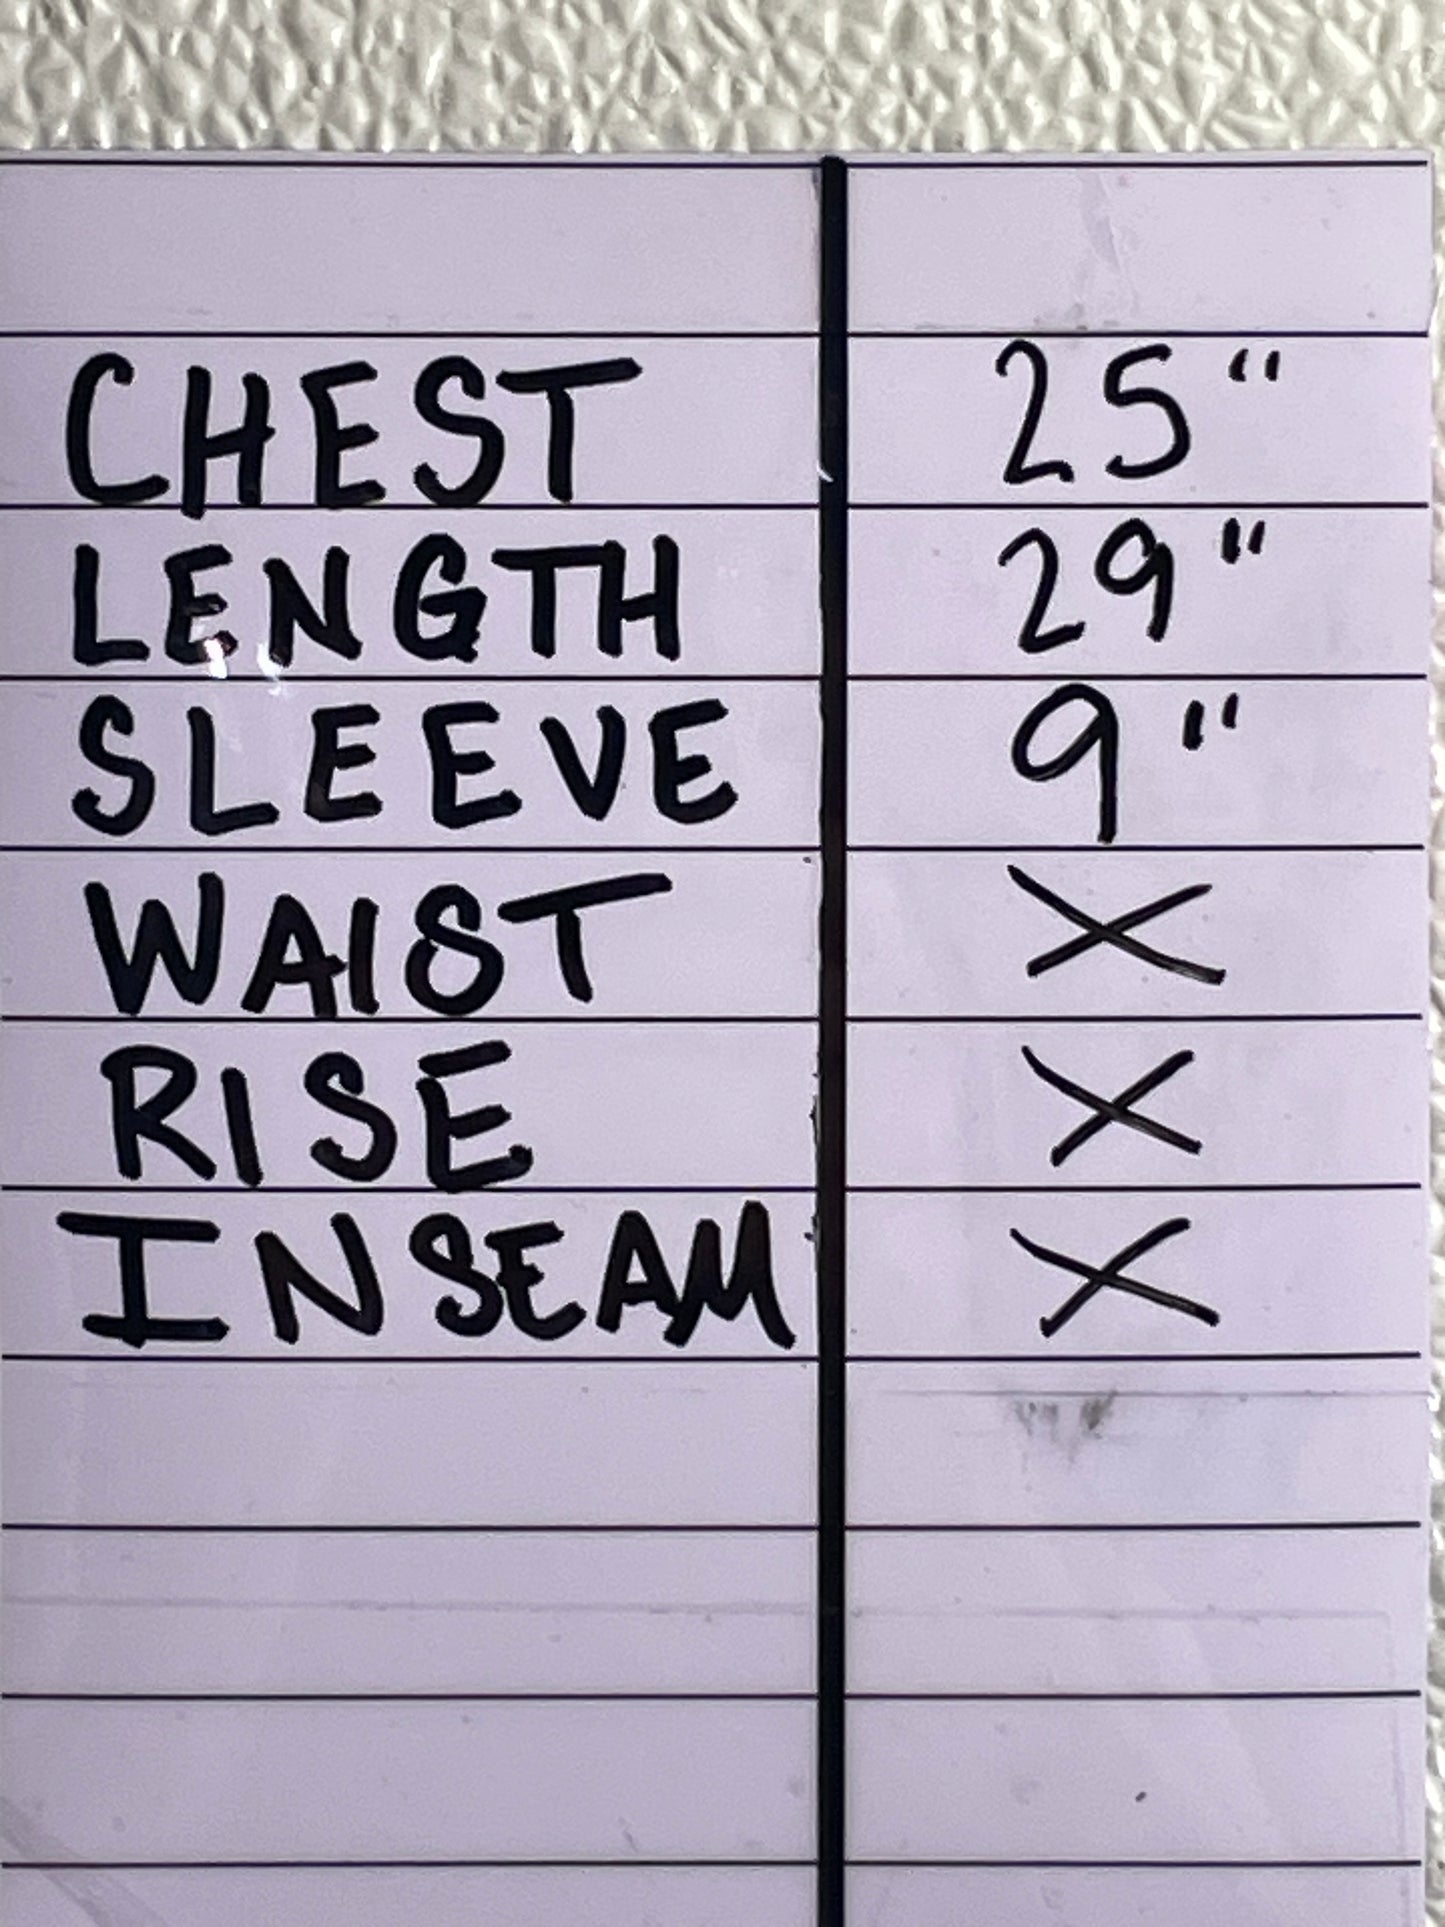 CHEST 25"
LENGTH 29"
SLEEVE 9"
WAIST X
RISE X
INSEAM X